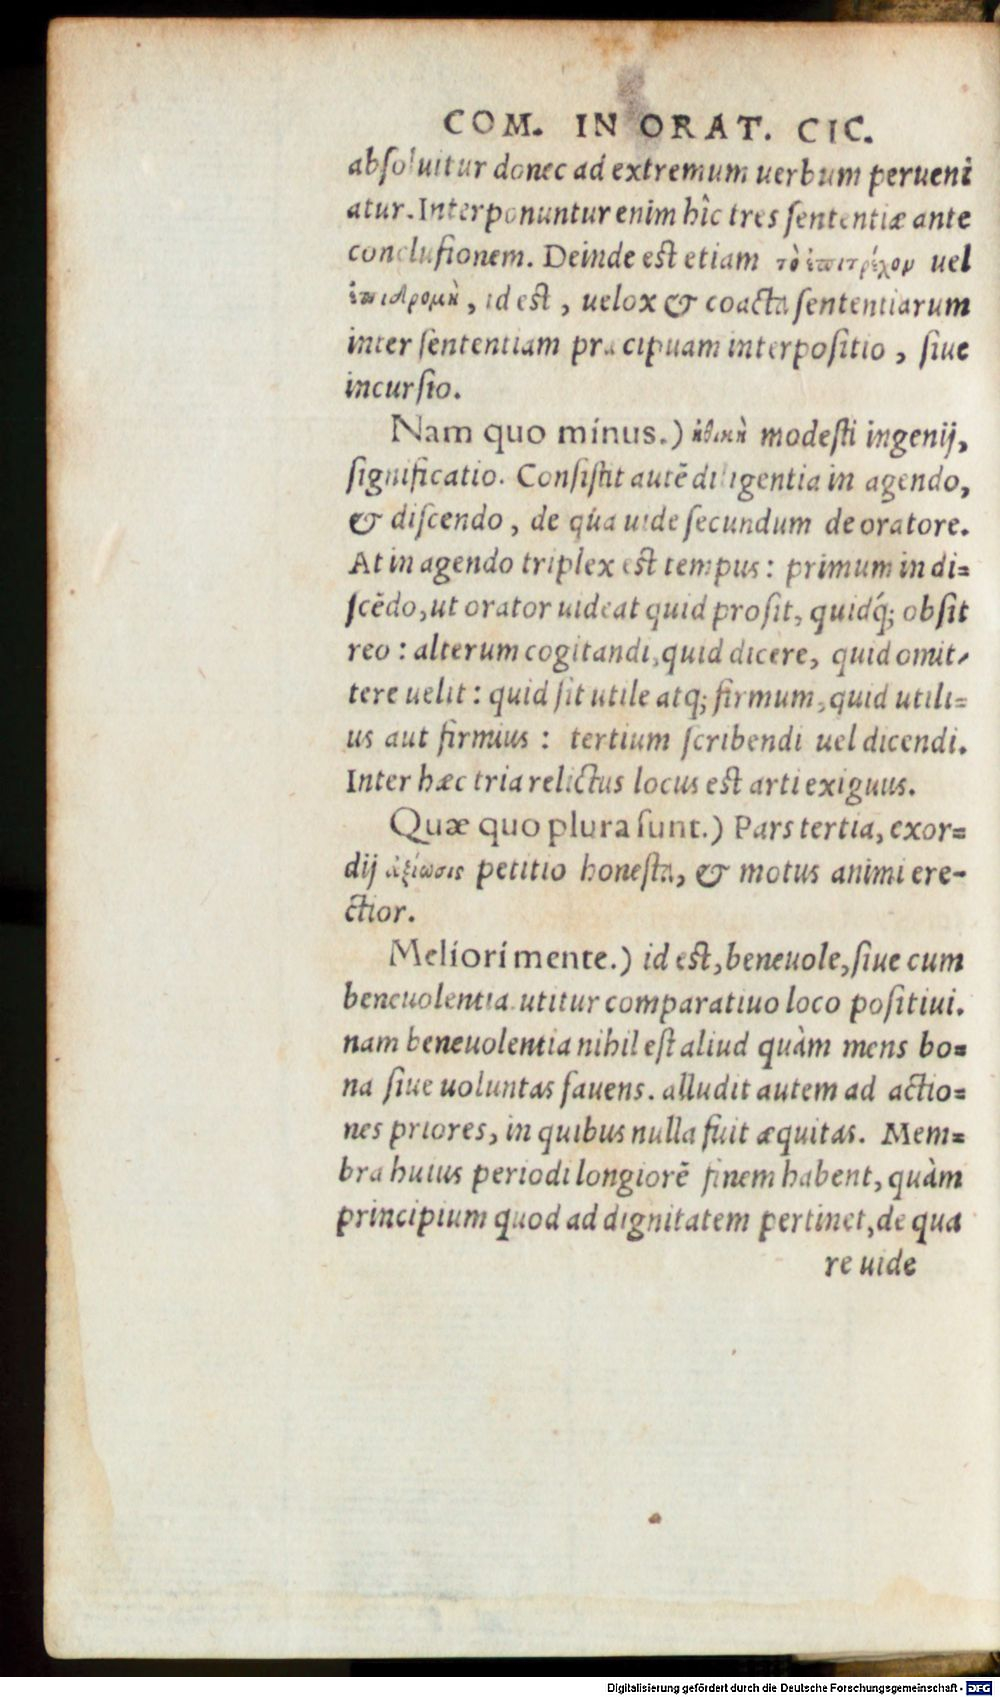 COM. IN ORAT. CIC.
absoluitur donec ad extremum uerbum perueni
atur. Interponuntur enim hîc tres sententiæ ante
conclusionem. Deinde est etiam τὸ ἐπιτρέχον uel
ἐπιδρομὴ, id est, uelox & coacta sententiarum
inter sententiam præcipuam interpositio, siue
incursio.
Nam quo minus.) ἠθικὴ modesti ingenij,
significatio. Consistit autē diligentia in agendo,
& discendo, de qua uide secundum de oratore.
At in agendo triplex est tempus: primum in di=
scēdo, ut orator uideat quid prosit, quidq́; obsit
reo: alterum cogitandi, quid dicere, quid omit-
tere uelit: quid sit utile atq; firmum, quid utili=
us aut firmius: tertium scribendi uel dicendi.
Inter hæc tria relictus locus est arti exiguus.
Quæ quo plura sunt.) Pars tertia, exor=
dij ἀξίωσις petitio honesta, & motus animi ere-
ctior.
Meliori mente.) id est, beneuole, siue cum
beneuolentia. utitur comparatiuo loco positiui.
nam beneuolentia nihil est aliud quàm mens bo=
na siue uoluntas fauens. alludit autem ad actio=
nes priores, in quibus nulla fuit æquitas. Mem=
bra huius periodi longiorē finem habent, quàm
principium quod ad dignitatem pertinet, de qua
re uide
Digitalisierung gefördert durch die Deutsche Forschungsgemeinschaft - DFG